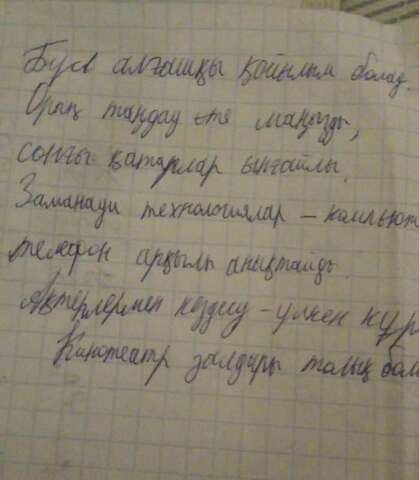 Бұл алғашқы қойылым болад.
Орын таңдау өте маңызды,
соңғы қатарлар ыңғайлы.
Заманауи технологиялар – компьют
телефон арқылы анықтайды.
Актерлермен кездесу – үлкен құр
Кинотеатр залдары толық бол